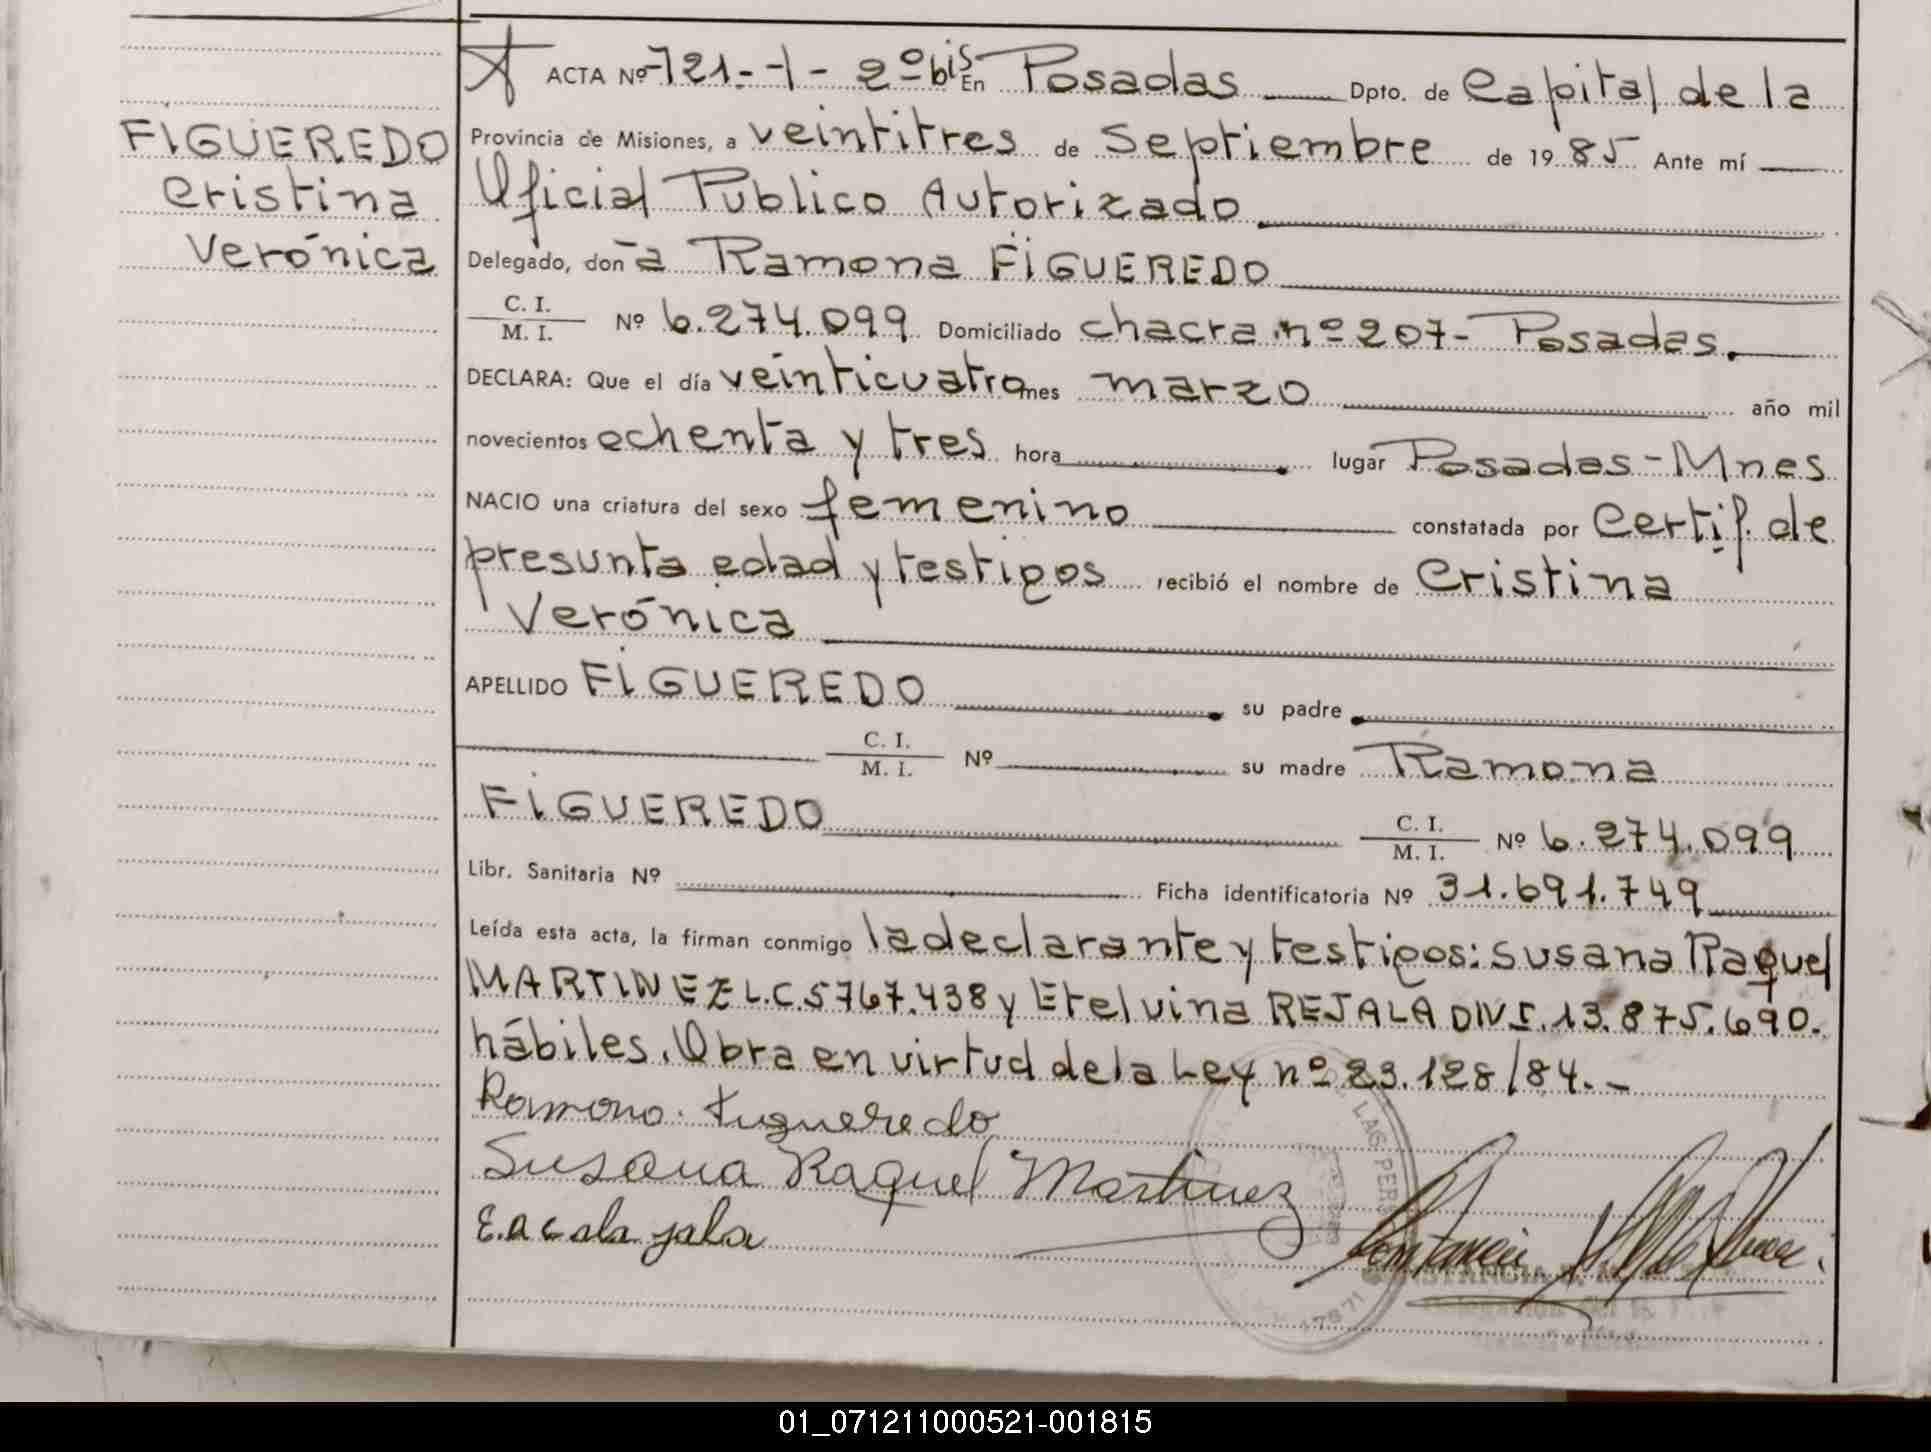 FIGUEREDO
Cristina
Verónica
ACTA Nº 721.-I- 2º bis En Posadas Dpto. de Capital de la
Provincia de Misiones, a veintitres de Septiembre de 1985 Ante mí
Oficial Publico Autorizado
Delegado, doña Ramona FIGUEREDO
C. I.
M. I. Nº 6.274.099 Domiciliado chacra nº 207- Posadas.
DECLARA: Que el día veinticuatro mes marzo año mil
novecientos ochenta y tres hora lugar Posadas-Mnes
NACIO una criatura del sexo femenino constatada por Certif. de
presunta edad y testigos recibió el nombre de Cristina
Verónica
APELLIDO FIGUEREDO su padre
C. I.
M. I. Nº su madre Ramona
FIGUEREDO C. I.
M. I. Nº 6.274.099
Libr. Sanitaria Nº Ficha identificatoria Nº 31.691.749
Leída esta acta, la firman conmigo la declarante y testigos: Susana Raquel
MARTINEZ L.C.5767.438 y Etelvina REJALA DNI.13.875.690.
hábiles. Obra en virtud de la Ley nº 23.128/84.-
Ramona Figueredo
Susana Raquel Martinez
LAS PER
01_071211000521-001815